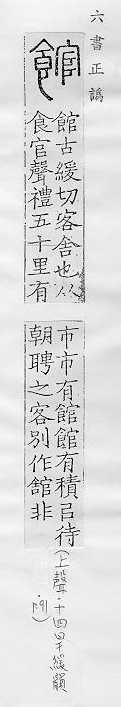 六書正譌
館
館古緩切客舍也从
食官聲禮五十里有
市市有館館有積㠯待
朝聘之客別作舘非
(上聲.十四旱緩韻